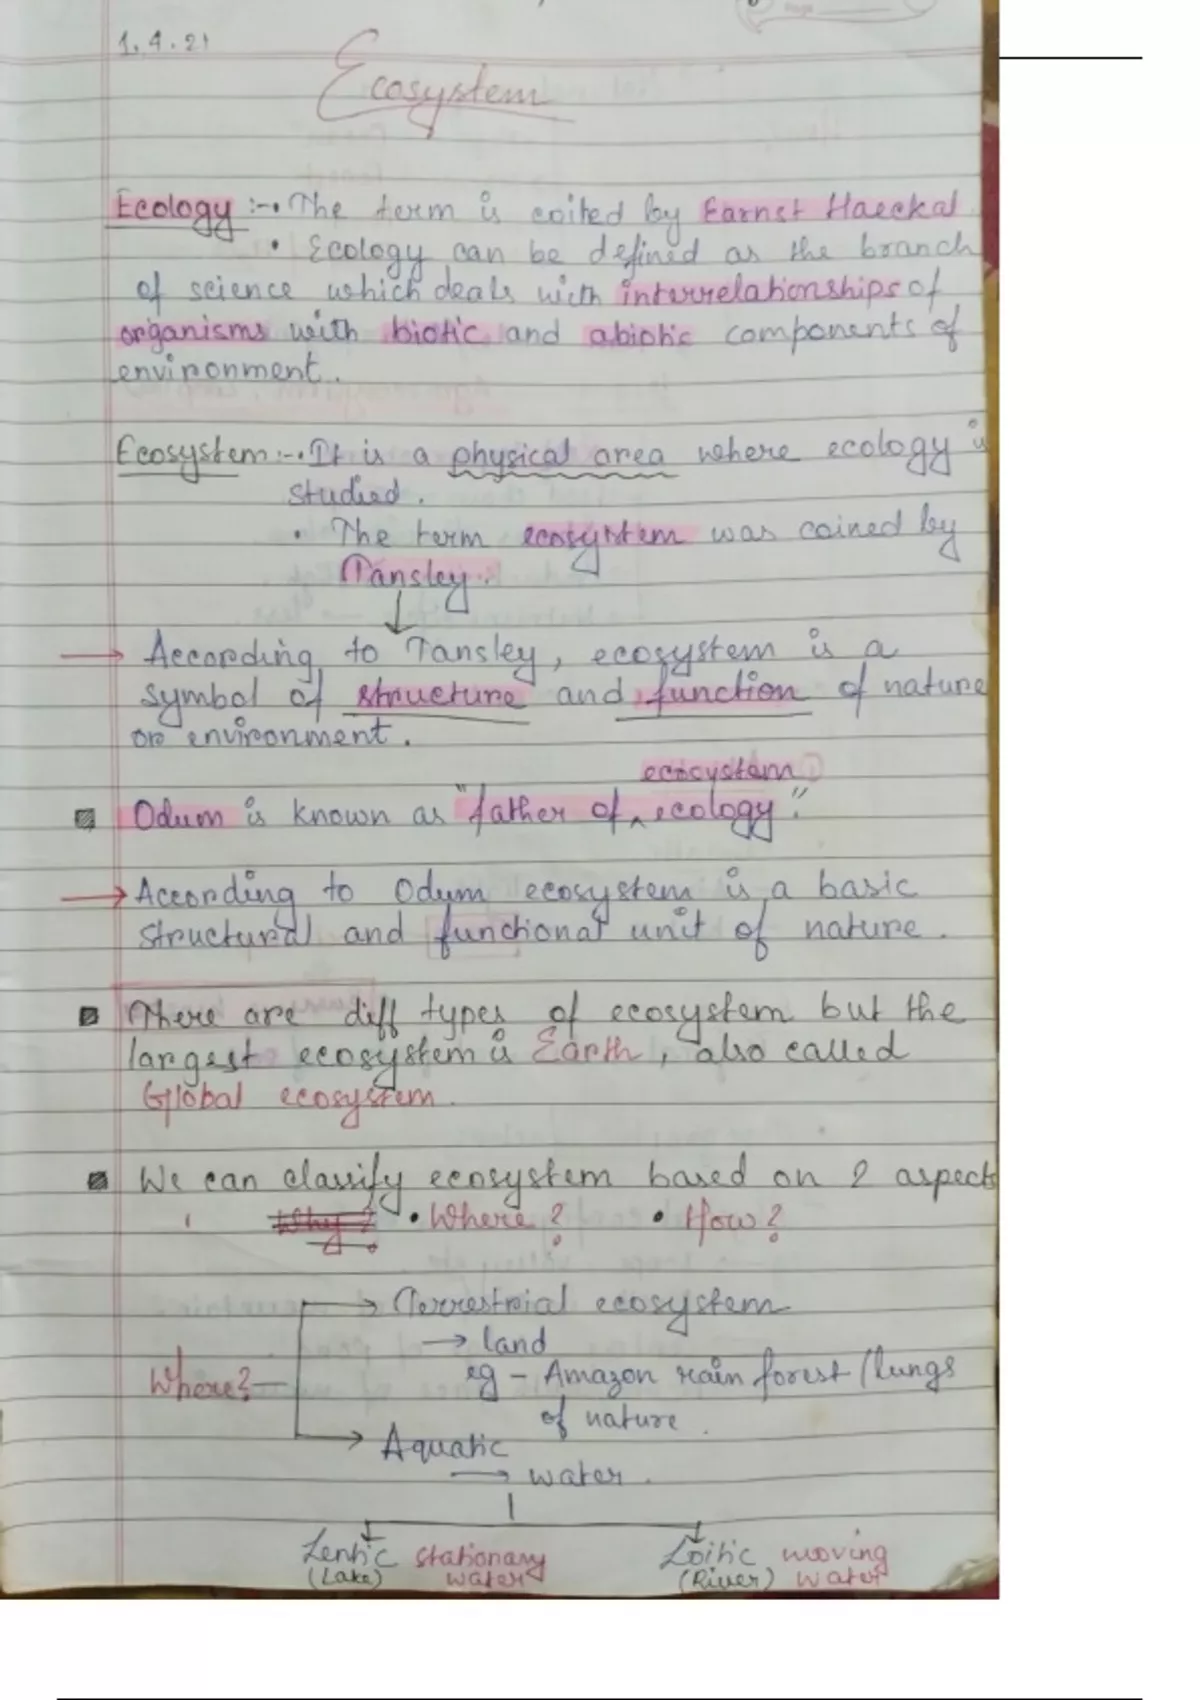 1.4.21
Ecosystem
Ecology :-• The term is coited by Earnst Haeckal
• Ecology can be defined as the branch
of science which deals with interrelationships of
organisms with biotic and abiotic components of
environment.
Ecosystem :-• It is a physical area where ecology is
studied.
• The term ecosystem was coined by
Tansley.
→ According to Tansley, ecosystem is a
symbol of structure and function of nature
or environment.
ecosystem
Odum is known as "father of ^ ecology".
→ According to Odum ecosystem is a basic
structural and functional unit of nature.
There are diff types of ecosystem but the
largest ecosystem is Earth, also called
Global ecosystem.
We can classify ecosystem based on 2 aspects
Why? • Where? • How?
→ Terrestrial ecosystem
→ land
Where?
eg - Amazon rain forest (lungs
of nature.
→ Aquatic
→ water.
Lentic stationary Loitic mooving
(Lake) water (River) water